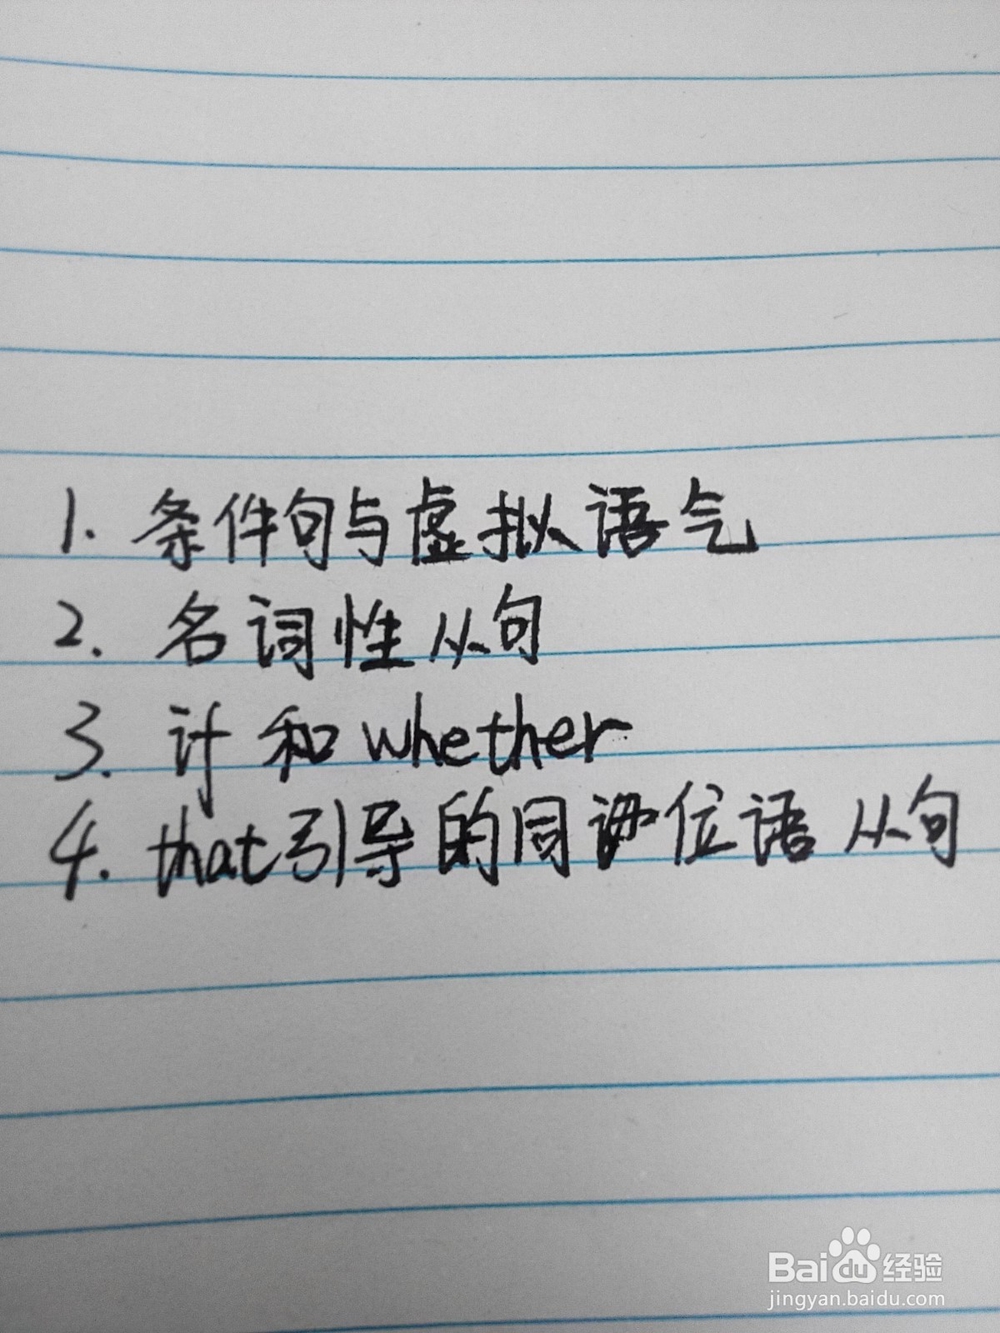 1. 条件句与虚拟语气
2. 名词性从句
3. 计和whether
4. that引导的同位语从句
Baidu经验
jingyan.baidu.com